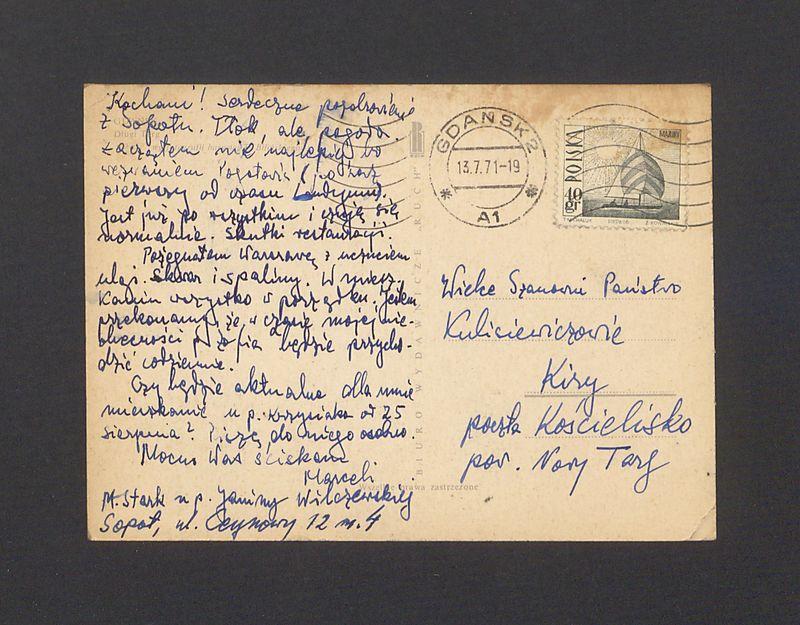 Kochani! Serdeczne pozdrowienia
z Sopotu. Tłok, ale pogoda.
Zacząłem nie najlepiej, bo
wezwaniem Pogotowia (po raz
pierwszy od czasu Londynu).
Jest już po wszystkim i czuję się
normalnie. Skutki restauracji.
Pożegnałem Warszawę z uczuciem
ulgi. Skwar i spaliny. W miesz-
kaniu wszystko w porządku. Jestem
przekonany, że w czasie mojej nie-
obecności p. Zofia będzie przycho-
dzić codziennie.
Czy będzie aktualne dla mnie
mieszkanie u p. Krzysiaka od 25
sierpnia? Piszę do niego osobno.
Mocno Was ściskam
Marceli
M. Stark u p. Janiny Wilczewskiej
Sopot, ul. Ceynowy 12 m. 4
BIURO WYDAWNICZE „RUCH”
Wszelkie prawa zastrzeżone
GDAŃSK 2
13.7.71-19
A1
POLSKA
10 gr
Wielce Szanowni Państwo
Kuliciewiczowie
Kiry
poczta Kościelisko
pow. Nowy Targ